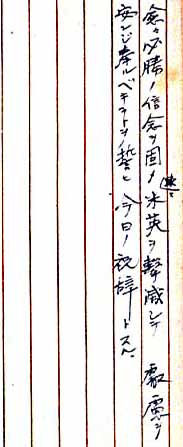 愈々必勝ノ信念ヲ固メ米英ヲ撃滅シテ 宸慮ヲ
安ンジ奉ルベキコトヲ誓ヒ今日ノ祝辞トスル